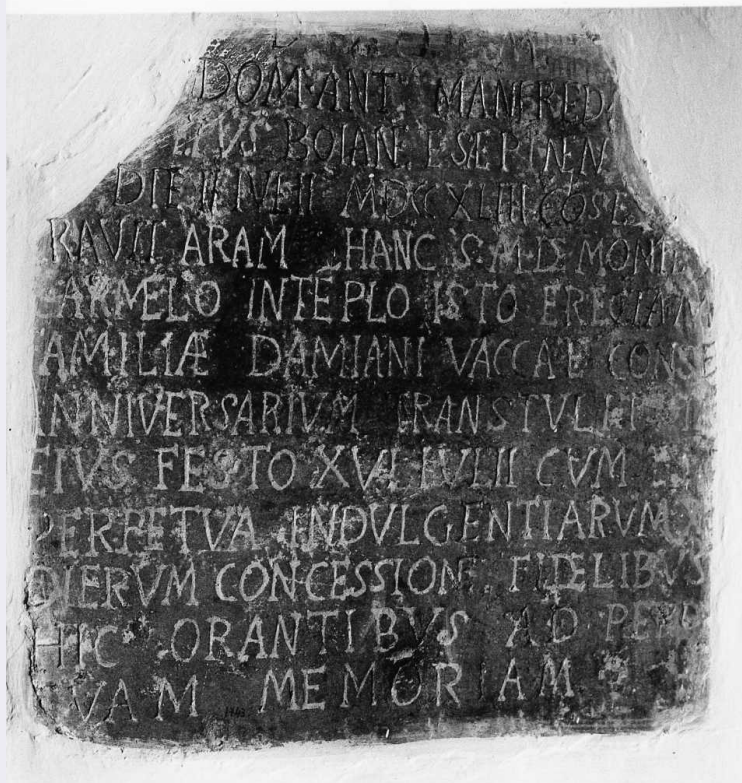 D M
DOM·ANT MANFRED
IPVS BOIANˑ E SÆPINEN
DIE II IVLII MDCCXLIII COSE
RAVIT ARAM HANC S·M·DE MONTE
CARMELO INTEPLO ISTO ERECTAM
AMILIÆ DAMIANI VACCA E CONSE
ANNIVERSARIVM TRANSTVLIT
EIVS FESTO XVI IVLII CVM
PERPETVA INDVLGENTIARVM X
DIERVM CONCESSIONE FIDELIBVS
HIC ORANTIBVS AD PERP
VAM MEMORIAM
1743